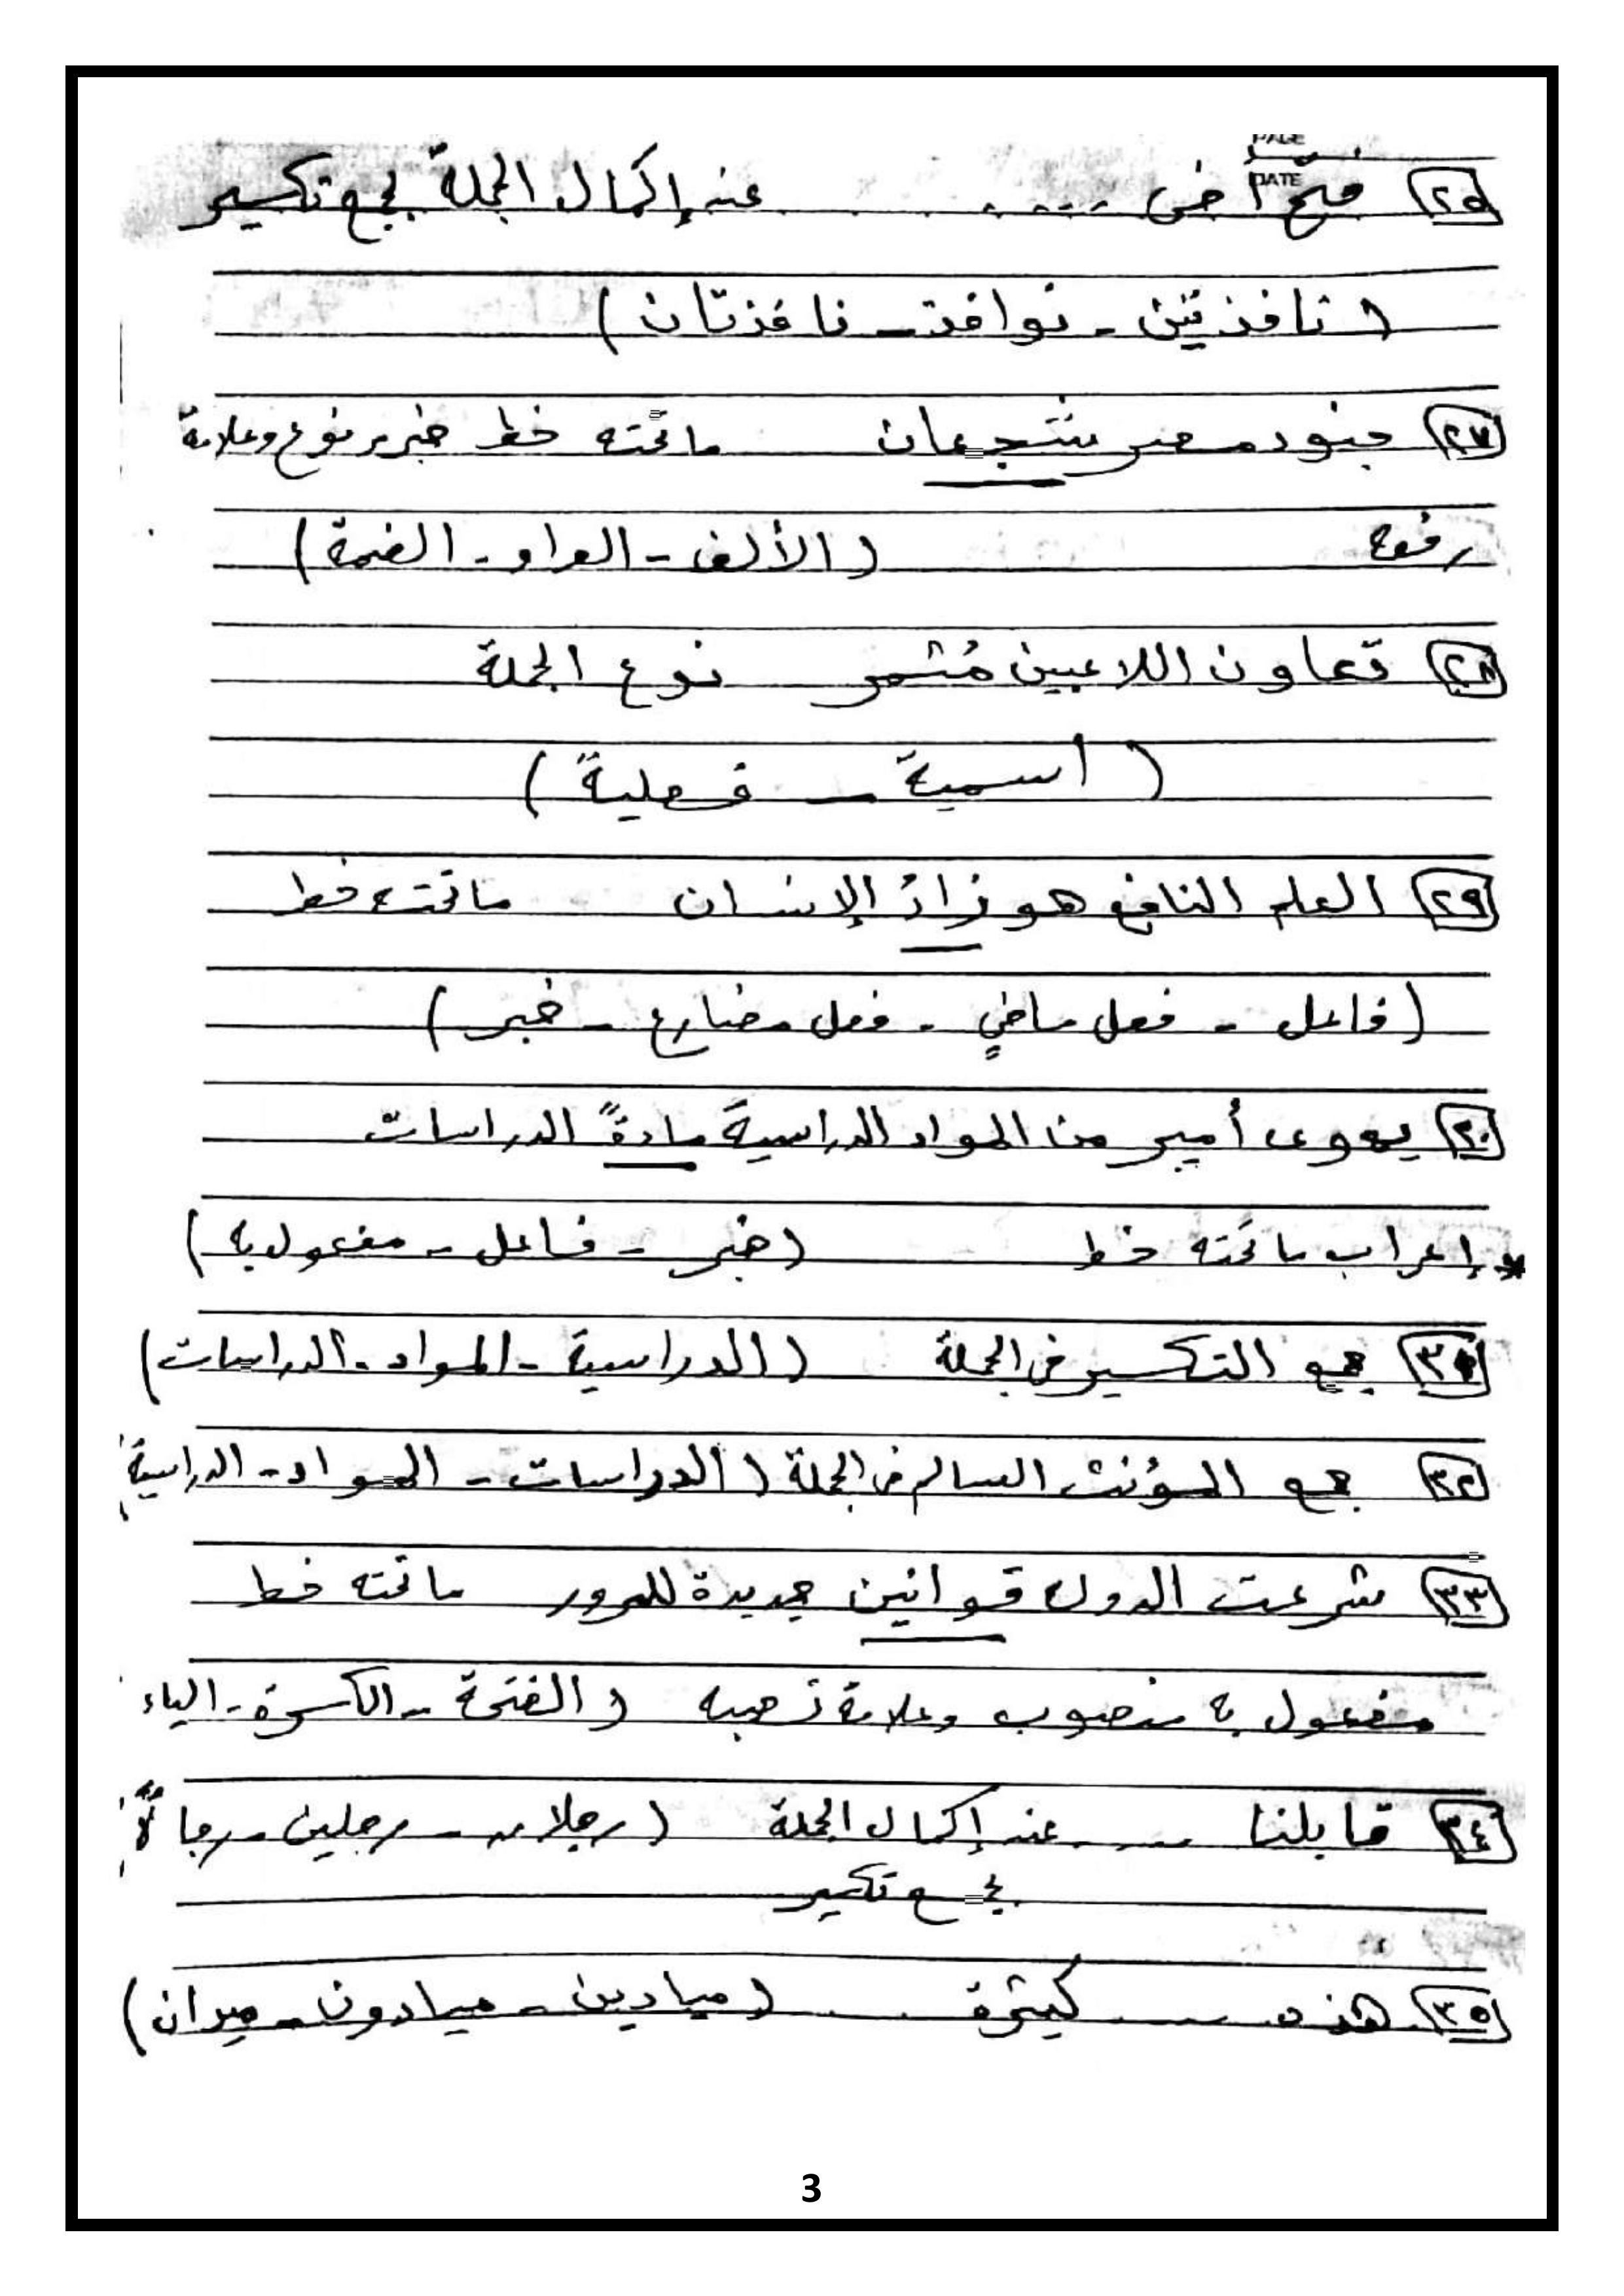 PAGE
DATE
٢٥ فتح أخى ..... عند إكمال الجملة بجمع تكسير
( نافذتين - نوافذ - نافذتان )
٢٧ جنود مصر شجعان ما تحته خط خبر مرفوع وعلامة
رفعه ( الألف - الواو - الضمة )
٢٨ تعاون اللاعبين مُثمر نوع الجملة
( اسمية - فعلية )
٢٩ العلم النافع هو زادُ الإنسان ما تحته خط
( فاعل - فعل ماضٍ - فعل مضارع - خبر )
يهوى أمير من المواد الدراسية مادةً الدراسات
* إعراب ما تحته خط ( خبر - فاعل - مفعول به )
جمع التكسير فى الجملة ( الدراسية - المواد - الدراسات )
٣٢ جمع المؤنث السالم فى الجملة ( الدراسات - المواد - الدراسية
٣٣ شرعت الدولة قوانين جديدة للمرور ما تحته خط
مفعول به منصوب وعلامة نصبه ( الفتحة - الكسرة - الياء
٣٤ قابلنا ..... عند إكمال الجملة ( رجلان - رجلين - رجالًا
بجمع تكسير
٣٥ هذه ..... كبيرة ( ميادين - ميادون - ميدان )
3